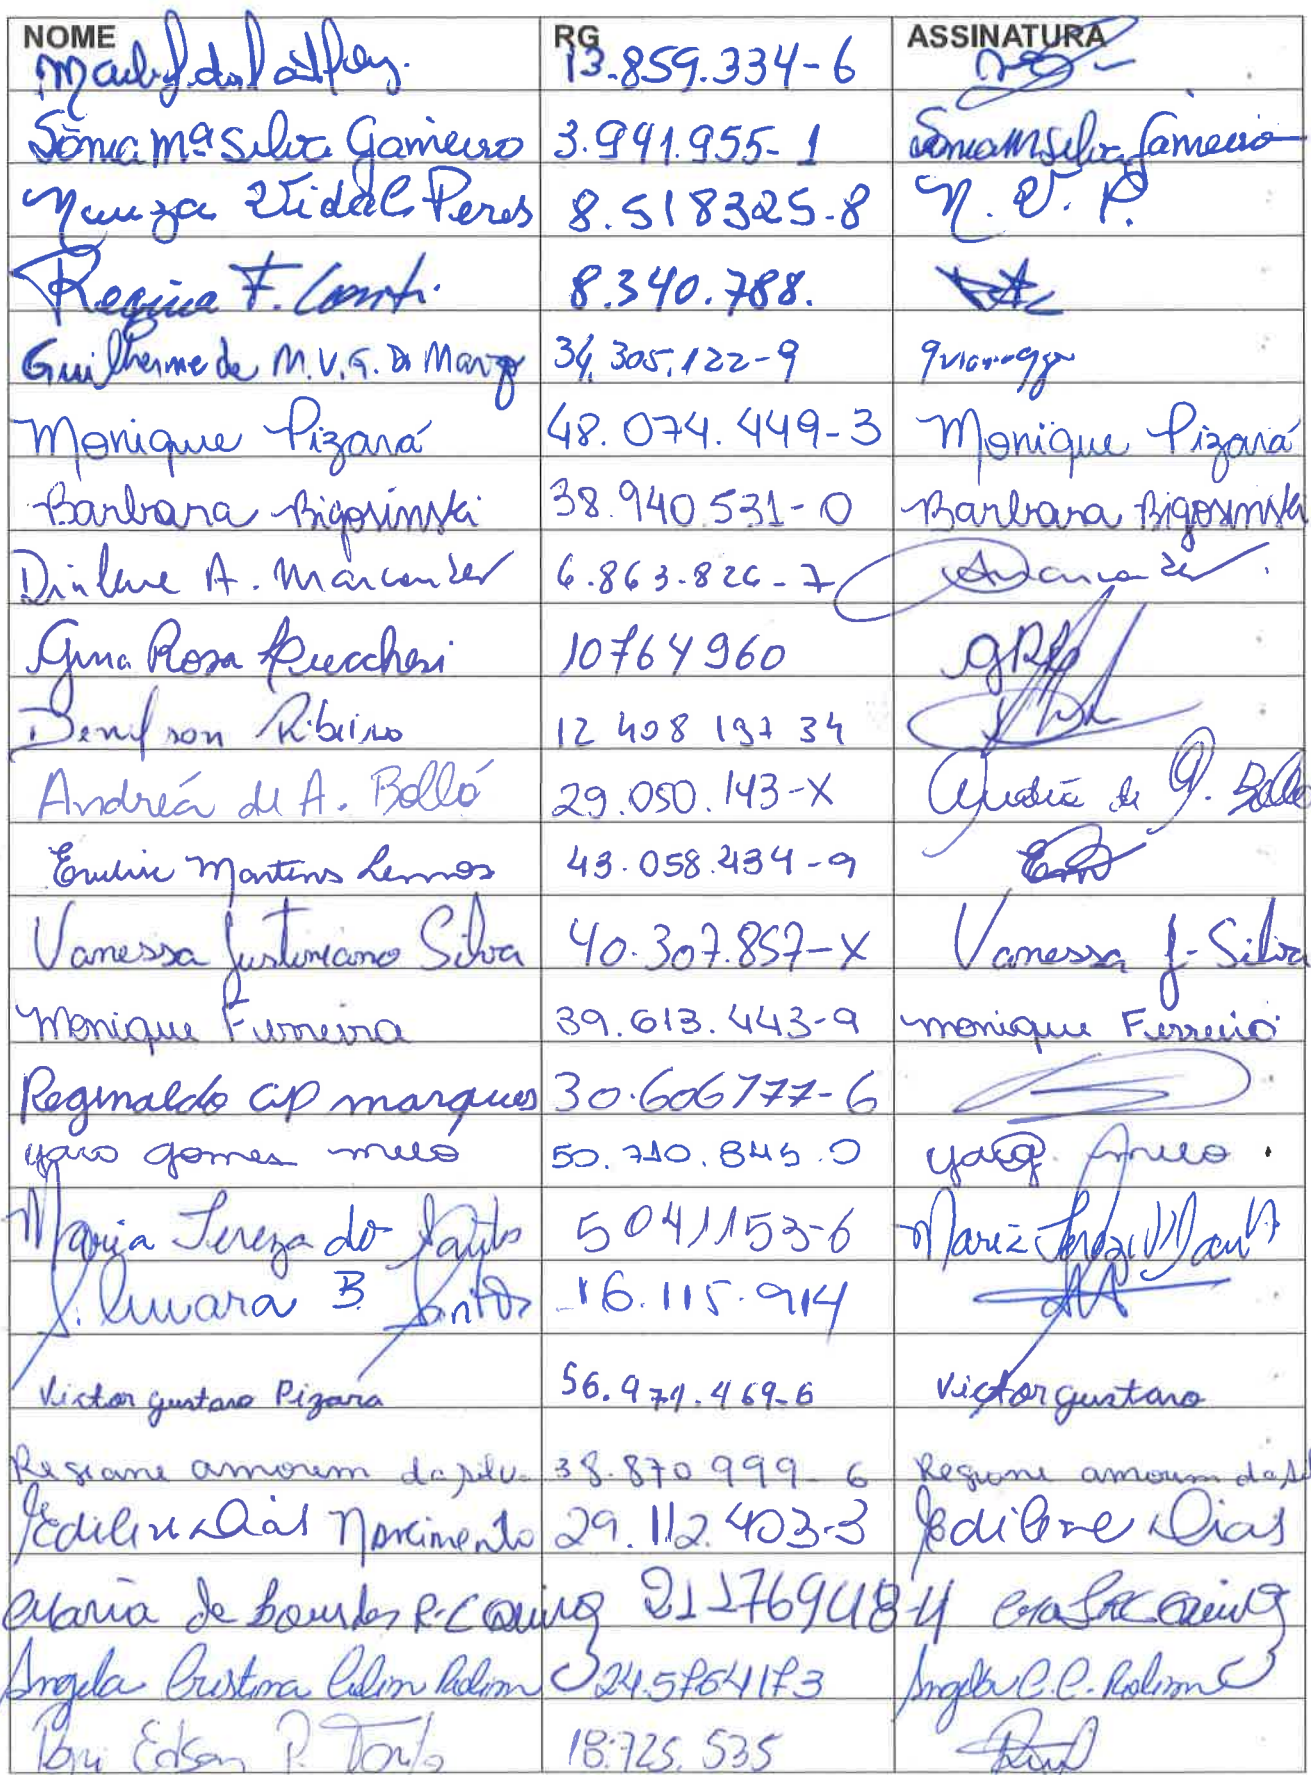 NOME RG ASSINATURA
13.859.334-6
Sônia Mª Silva Gameiro 3.941.955-1 Sonia M Silva Gameiro
Neuza Vidal Peres 8.518325-8 N. V. P.
Regina F. Conti 8.340.788.
Guilherme de M.V.G. Di Marzo 34.305.122-9
Monique Pizará 48.074.449-3 Monique Pizará
Barbara Bigosinski 38.940.531-0 Barbara Bigosinski
Dirlene A. 6.863.826-7
Gina Rosa 10764960
Denilson Ribeiro 12 408 137 34
Andréa de A. Bolló 29.050.143-X de A. Bollo
Martins Lemos 43.058.434-9
Vanessa Justiniano Silva 40.307.857-X Vanessa J. Silva
Monique Ferreira 39.613.443-9 Monique Ferreira
Reginaldo Ap marques 30.606777-6
gomes melo 50.710.845.0
Maria Tereza do Santos 5041153-6 Maria
B. Santos 16.115.914
Victor gustavo Pizara 56.971.469-6 Victor gustavo
Regiane amorim da silva 38.870 999-6 Regiane amorim da
Edilene Dias Nascimento 29.112.403-3 Edilene Dias
Maria de Lourdes R.C 21176948-4
Angela Cristina Rolim 24.5764173 Angela C.C. Rolim
Edson P. 18.725.535